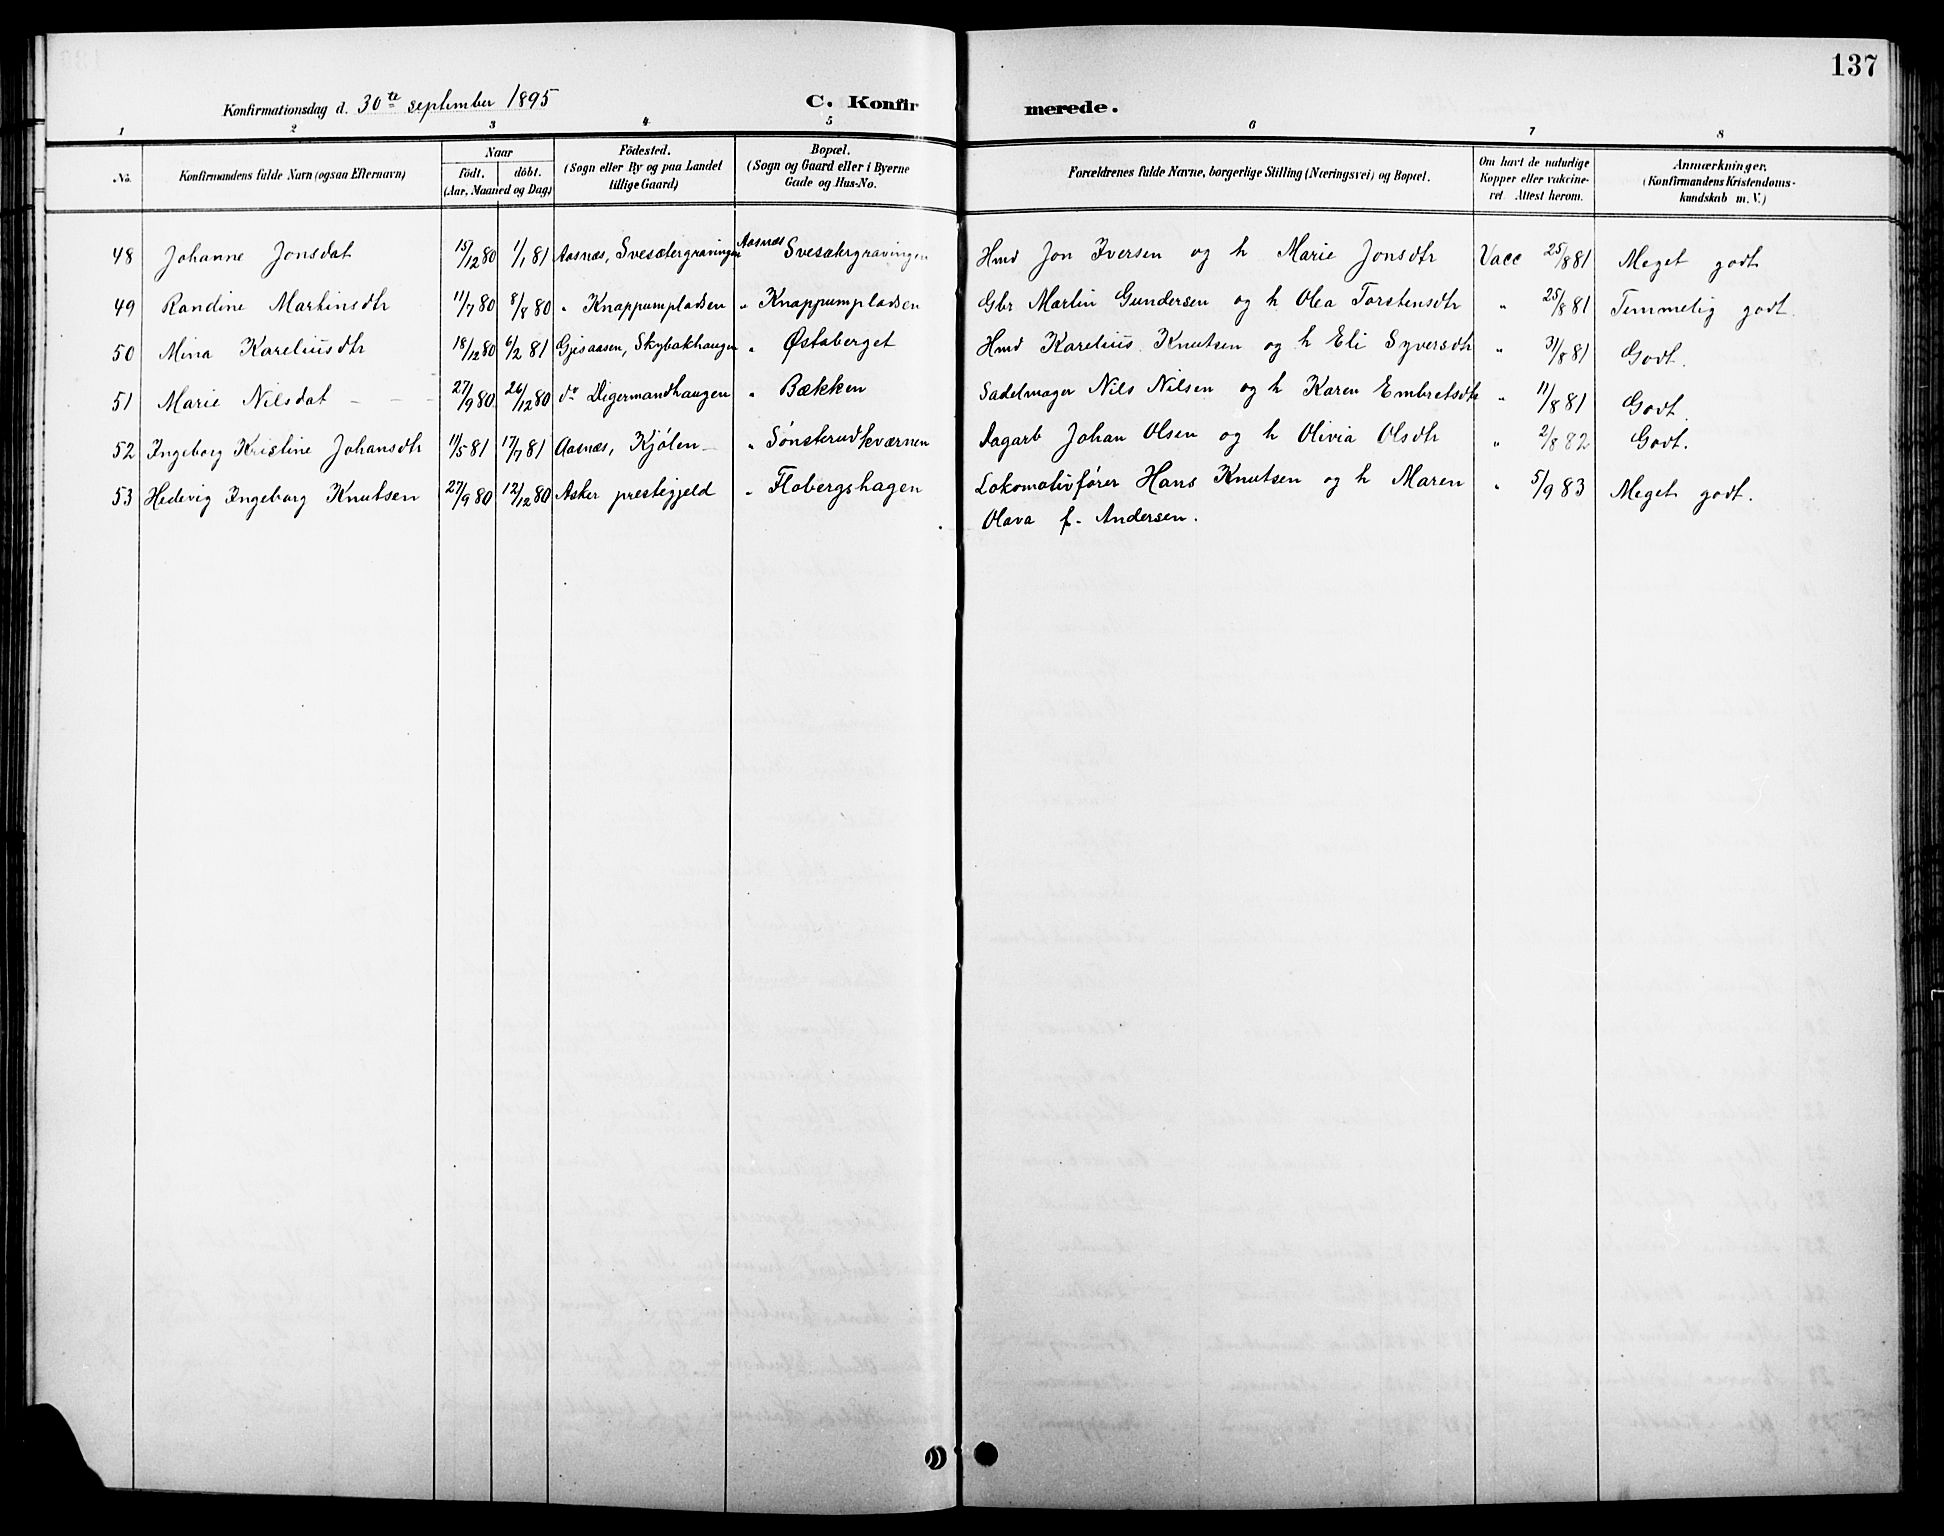 137
Konfirmationsdag d. 30te september 1895 C. Konfirmerede.
1 2 3 4 5 6 7 8
No. Konfirmandens fulde Navn (ogsaa Efternavn) Naar födt. döbt. (Aar, Maaned og Dag) Födested. (Sogn eller By og paa Landet tillige Gaard) Bopæl. (Sogn og Gaard eller i Byerne Gade og Hus-No. Forældrenes fulde Navne, borgerlige Stilling (Næringsvei) og Bopæl. Om havt de naturlige Kopper eller vakcineret. Attest herom. Anmærkninger. (Konfirmandens Kristendomskundskab m. V.)
48 Johanne Jonsdat 15/12 80 1/1 81 Aasnæs, Svesætergravingen Aasnæs Svesætergravingen Hmd Jon Iversen og h Marie Jonsdtr Vacc 25/8 81 Meget godt
49 Randine Martinsdtr 11/7 80 8/8 80 " Knappumpladsen " Knappumpladsen Gbr Martin Gundersen og h Olea Torstensdtr " 25/8 81 Temmelig godt.
50 Mina Kareliusdtr 18/12 80 6/2 81 Gjesaasen, Skybakhaugen " Østaberget Hmd Karelius Knutsen og h Eli Syversdtr " 31/8 81 Godt.
51 Marie Nilsdat - - - 27/9 80 26/12 80 do Digermandhaugen " Bækken Sadelmager Nils Nilsen og h Karen Embretsdtr " 11/8 81 Godt.
52 Ingeborg Kristine Johansdtr 11/5 81 17/7 81 Aasnæs, Kjølen - " Sønsterudkværnen Dagarb Johan Olsen og h Olivia Olsdtr " 2/8 82 Godt.
53 Hedevig Ingeborg Knutsen 27/9 80 12/12 80 Asker prestegjeld " Flobergshagen Lokomotivfører Hans Knutsen og h Maren " 5/9 83 Meget godt.
Olava f. Andersen.